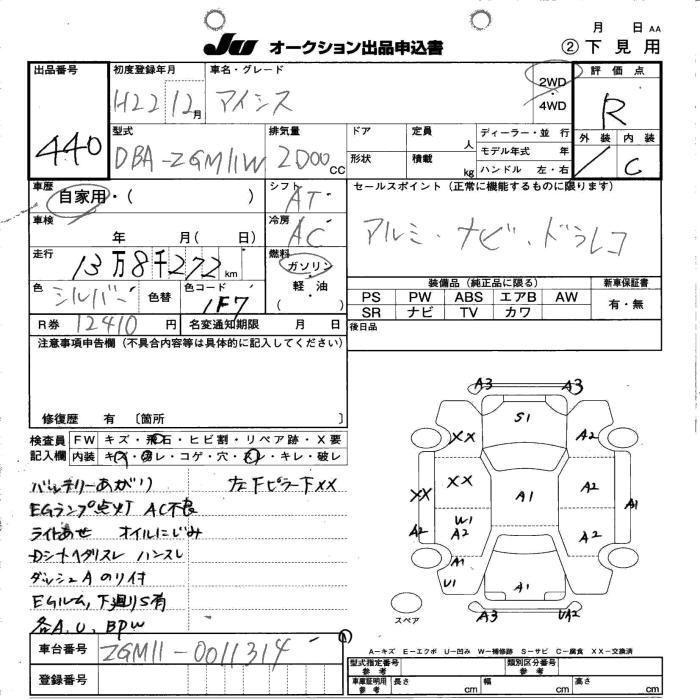 月 日 AA
JU オークション出品申込書 ②下見用
出品番号 440
初度登録年月 H22 12月
車名・グレード アイシス
2WD・4WD
評価点 R
外装 内装 C
型式 DBA-ZGM11W
排気量 2000cc
ドア 定員 人
形状 積載 kg
ディーラー・並行
モデル年式 年
ハンドル 左・右
車歴 自家用・( )
シフト AT
セールスポイント(正常に機能するものに限ります)
アルミ・ナビ・ドラレコ
車検 年 月( 日)
冷房 AC
走行 13万8千272km
燃料 ガソリン・軽油 ( )
色 シルバー 色替 色コード 1F7
装備品(純正品に限る) 新車保証書
PS PW ABS エアB AW 有・無
SR ナビ TV カワ
R券 12410円 名変通知期限 月 日
後日品
注意事項申告欄(不具合内容等は具体的に記入してください)
修復歴 有〔箇所 〕
検査員記入欄 FW キズ・飛石・ヒビ割・リペア跡・X要
内装 キズ・汚レ・コゲ・穴・スレ・キレ・破レ
バッテリーあがり 左下ピラー下XX
EGランプ点灯 AC不良
ライトあせ オイルにじみ
Dシートヘタリスレ ハンスレ
ダッシュA のり付
EGルーム,下廻りS有
各A,U,BPW
車台番号 ZGM11-0011314
登録番号
A3 A3
S1
XX A2
XX XX A1 A2 A1
W1
A2 A2 A2
A1
U1 A1
スペア A3 UA2
A−キズ E−エクボ U−凹み W−補修跡 S−サビ C−腐食 XX−交換済
型式指定番号 参考 類別区分番号 参考
車庫証明用 参考 長さ cm 幅 cm 高さ cm